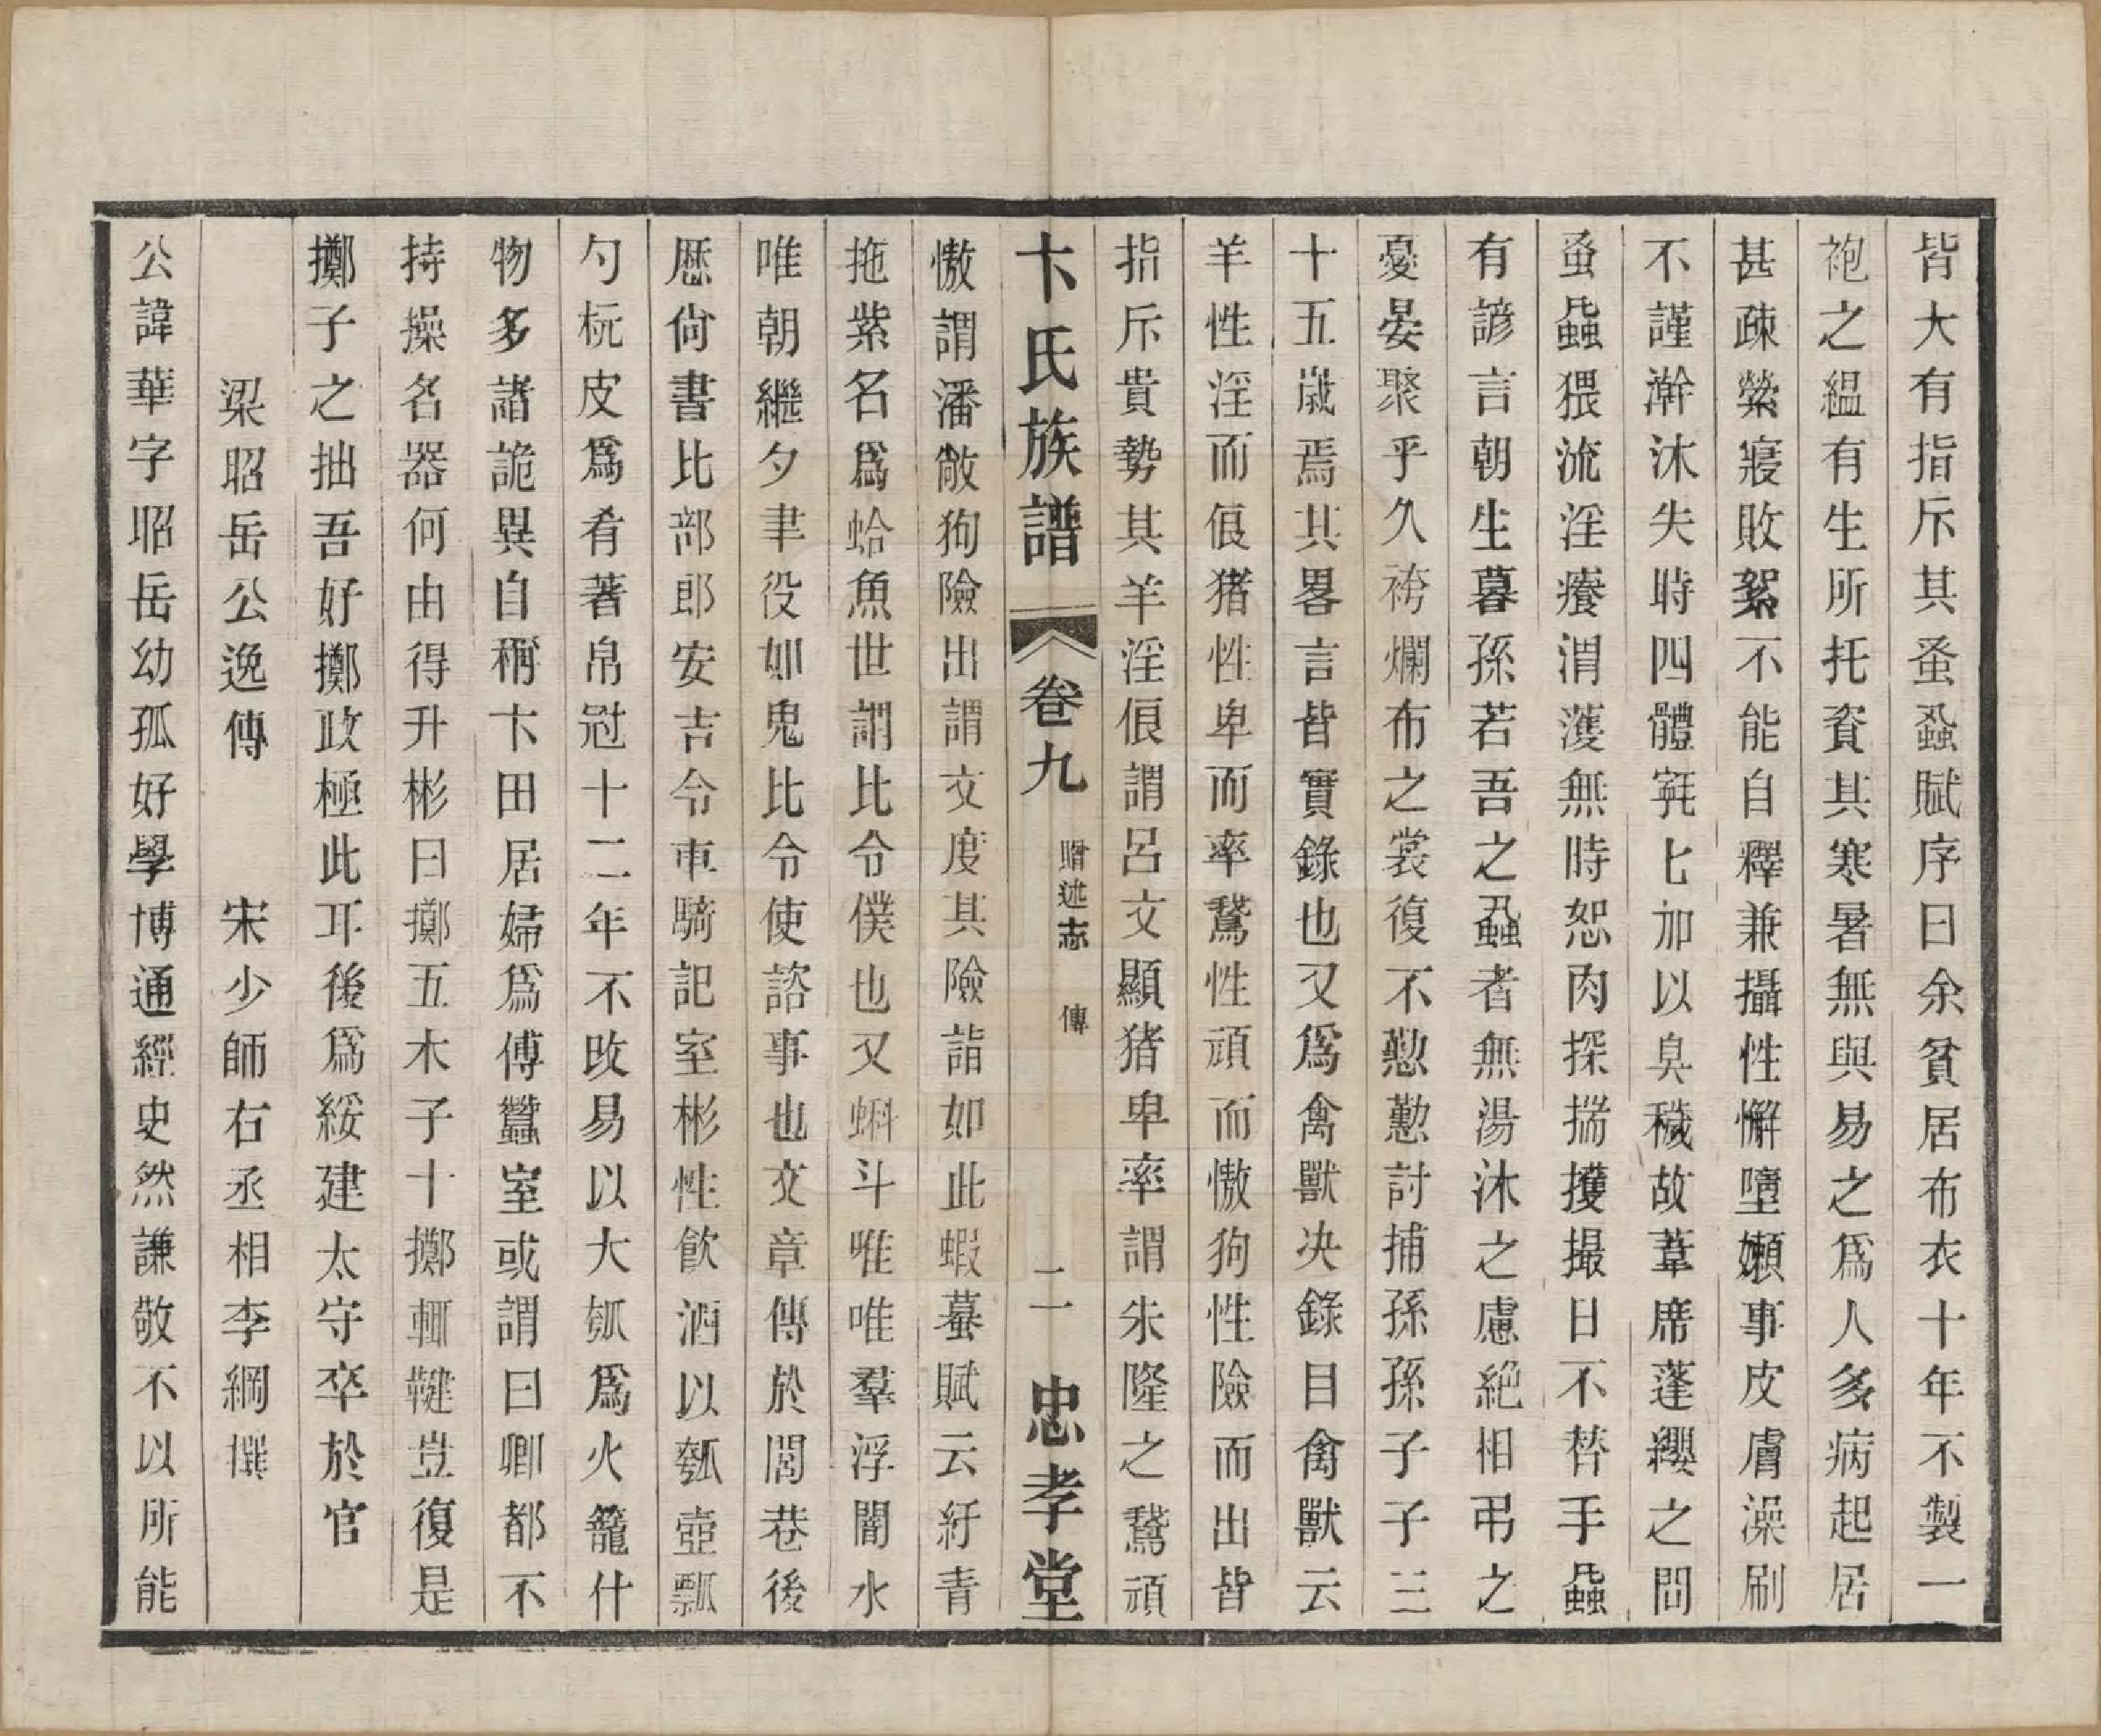 皆大有指斥其蚤蝨賦序曰余貧居布衣十年不製一
袍之縕有生所托資其寒暑無與易之爲人多病起居
甚疎縈寢敗絮不能自釋兼攝性懈墮嬾事皮膚澡刷
不謹澣沐失時四體𣯶𣯶加以臭穢故葦席蓬纓之間
蚤蝨猥流淫癢渭濩無時恕肉探揣擭撮日不替手蝨
有諺言朝生暮孫若吾之蝨者無湯沐之慮絕相弔之
憂晏聚乎久袴爛布之裳復不懃懃討捕孫孫子子三
十五歲焉其畧言皆實錄也又爲禽獸决錄目禽獸云
羊性淫而佷猪性卑而率鵞性頑而慠狗性險而出皆
指斥貴勢其羊淫佷謂呂文顯猪卑率謂朱隆之鵞頑
卞氏族譜 卷九 贈述志 傳 二一 忠孝堂
慠謂潘敞狗險出謂文度其險詣如此蝦蟇賦云紆青
拖紫名爲蛤魚世謂比令僕也又蝌斗唯唯羣浮闇水
唯朝繼夕聿役如鬼比令使諮事也文章傳於閭巷後
歷尙書比部郎安吉令車騎記室彬性飮酒以瓠壺瓢
勺杬皮爲肴著帛冠十二年不改易以大瓠爲火籠什
物多諸詭異自稱卞田居婦爲傅蠶室或謂曰卿都不
持操名器何由得升彬曰擲五木子十擲輒鞬豈復是
擲子之拙吾好擲政極此耳後爲綏建太守卒於官
梁昭岳公逸傳 宋少師右丞相李綱撰
公諱華字昭岳幼孤好學博通經史然謙敬不以所能